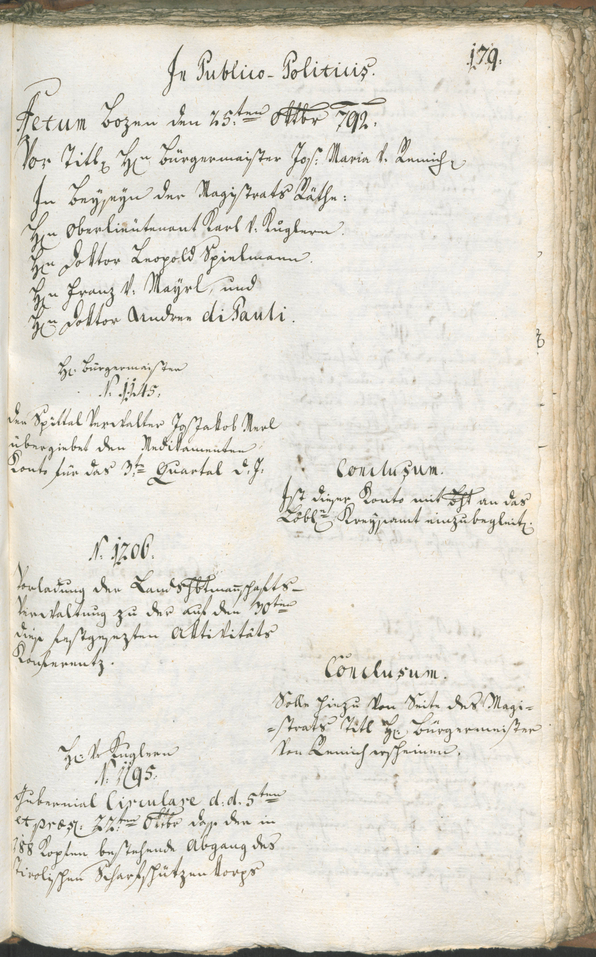 179.
In Publico-Politicis.
Actum Bozen den 25.ten Oktbr 792.
Vor Titl. Hn Bürgermaister Jos: Maria v. Remich
In Beyseyn der Magistrats Räthe:
Hn Oberlieutenant Karl v. Kuglern.
Hn Doktor Leopold Spielmann.
Hn Franz v. Mayrl, und
Hn Doktor Andree di Pauli.
Hr. Bürgermaister
N. 1145.
der Spittal Verwalter Jos Jakob Merl
übergiebet den Medikamenten
Konto für das 3te Quartal d. J.
Conclusum.
Ist dieser Konto mit Bht an das
Löbl. Kreysamt einzubegleit.
N. 1206.
Vorladung der Landshbtmañschafts-
Verwaltung zu der auf den 30ten
dieß festgesezten Aktivitäts
Konferentz.
Conclusum.
Solle hiezu von Seite des Magi-
-strats Titl Hr. Bürgermeister
von Remich erscheinen.
Hr. v. Kuglern
N. 1195.
Gubernial Circulare d. d. 5ten
et præs. 22ten Oktbr daß der in
188 Köpfen bestehende Abgang des
Tirolischen Scharfschützen Korps